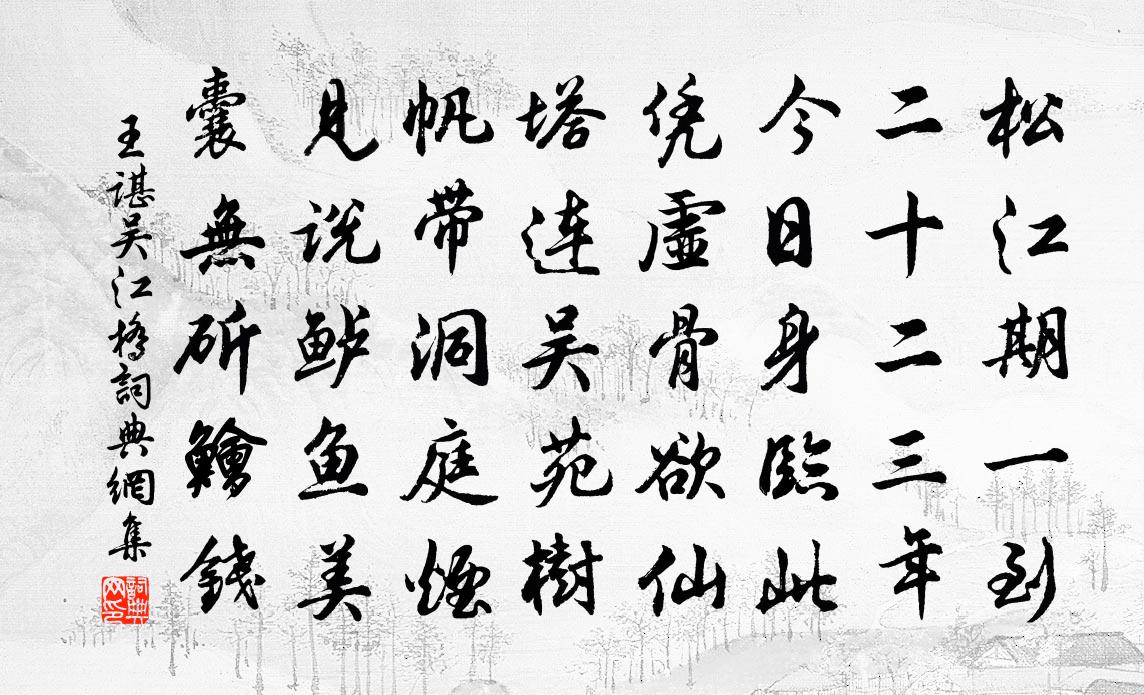 松江期一到
二十二三年
今日身臨此
凭虛骨欲仙
塔連吴苑樹
帆带洞庭煙
見说鲈魚美
囊無斫鱠錢
王谌吴江橋詞典網集